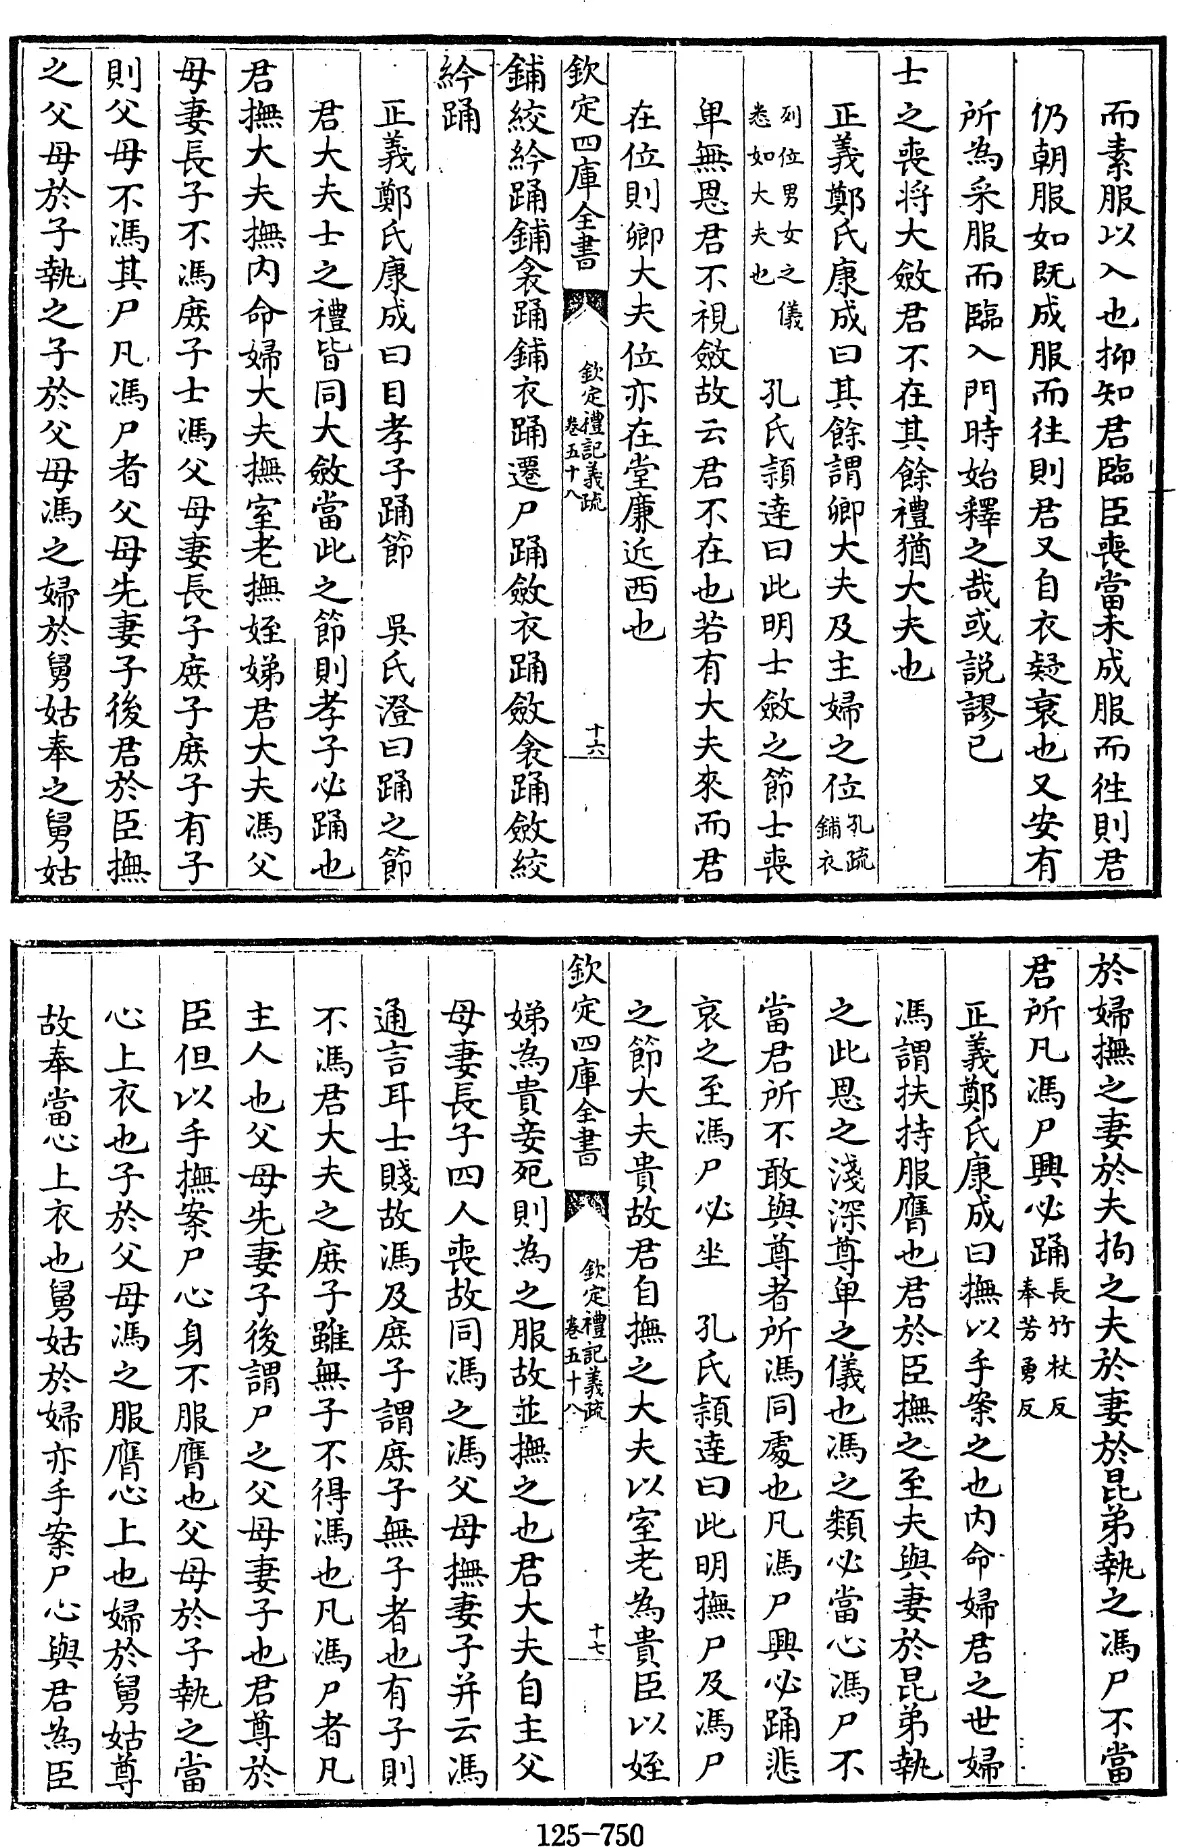 而素服以入也抑知君臨臣喪當未成服而徃則君
仍朝服如既成服而往則君又自衣疑衰也又安有
所為采服而臨入門時始釋之哉或説謬已
士之喪将大斂君不在其餘禮猶大夫也
正義鄭氏康成曰其餘謂卿大夫及主婦之位孔疏鋪衣
列位男女之儀悉如大夫也 孔氏頴達曰此明士斂之節士喪
卑無恩君不視斂故云君不在也若有大夫來而君
在位則卿大夫位亦在堂廉近西也
欽定四庫全書 欽定禮記義疏 卷五十八 十六
鋪絞紟踊鋪衾踊鋪衣踊遷尸踊斂衣踊斂衾踊斂絞
紟踊
正義鄭氏康成曰目孝子踊節 吳氏澄曰踊之節
君大夫士之禮皆同大斂當此之節則孝子必踊也
君撫大夫撫内命婦大夫撫室老撫姪娣君大夫馮父
母妻長子不馮庻子士馮父母妻長子庻子庻子有子
則父母不馮其尸凡馮尸者父母先妻子後君於臣撫
之父母於子執之子於父母馮之婦於舅姑奉之舅姑
於婦撫之妻於夫拘之夫於妻於昆弟執之馮尸不當
君所凡馮尸興必踊長竹杖反奉芳勇反
正義鄭氏康成曰撫以手案之也内命婦君之世婦
馮謂扶持服膺也君於臣撫之至夫與妻於昆弟執
之此恩之淺深尊卑之儀也馮之類必當心馮尸不
當君所不敢與尊者所馮同處也凡馮尸興必踊悲
哀之至馮尸必坐 孔氏頴達曰此明撫尸及馮尸
之節大夫貴故君自撫之大夫以室老為貴臣以姪
欽定四庫全書 欽定禮記義疏 卷五十八 十七
娣為貴妾死則為之服故並撫之也君大夫自主父
母妻長子四人喪故同馮之馮父母撫妻子并云馮
通言耳士賤故馮及庻子謂庻子無子者也有子則
不馮君大夫之庻子雖無子不得馮也凡馮尸者凡
主人也父母先妻子後謂尸之父母妻子也君尊於
臣但以手撫案尸心身不服膺也父母於子執之當
心上衣也子於父母馮之服膺心上也婦於舅姑尊
故奉當心上衣也舅姑於婦亦手案尸心與君為臣
125-750